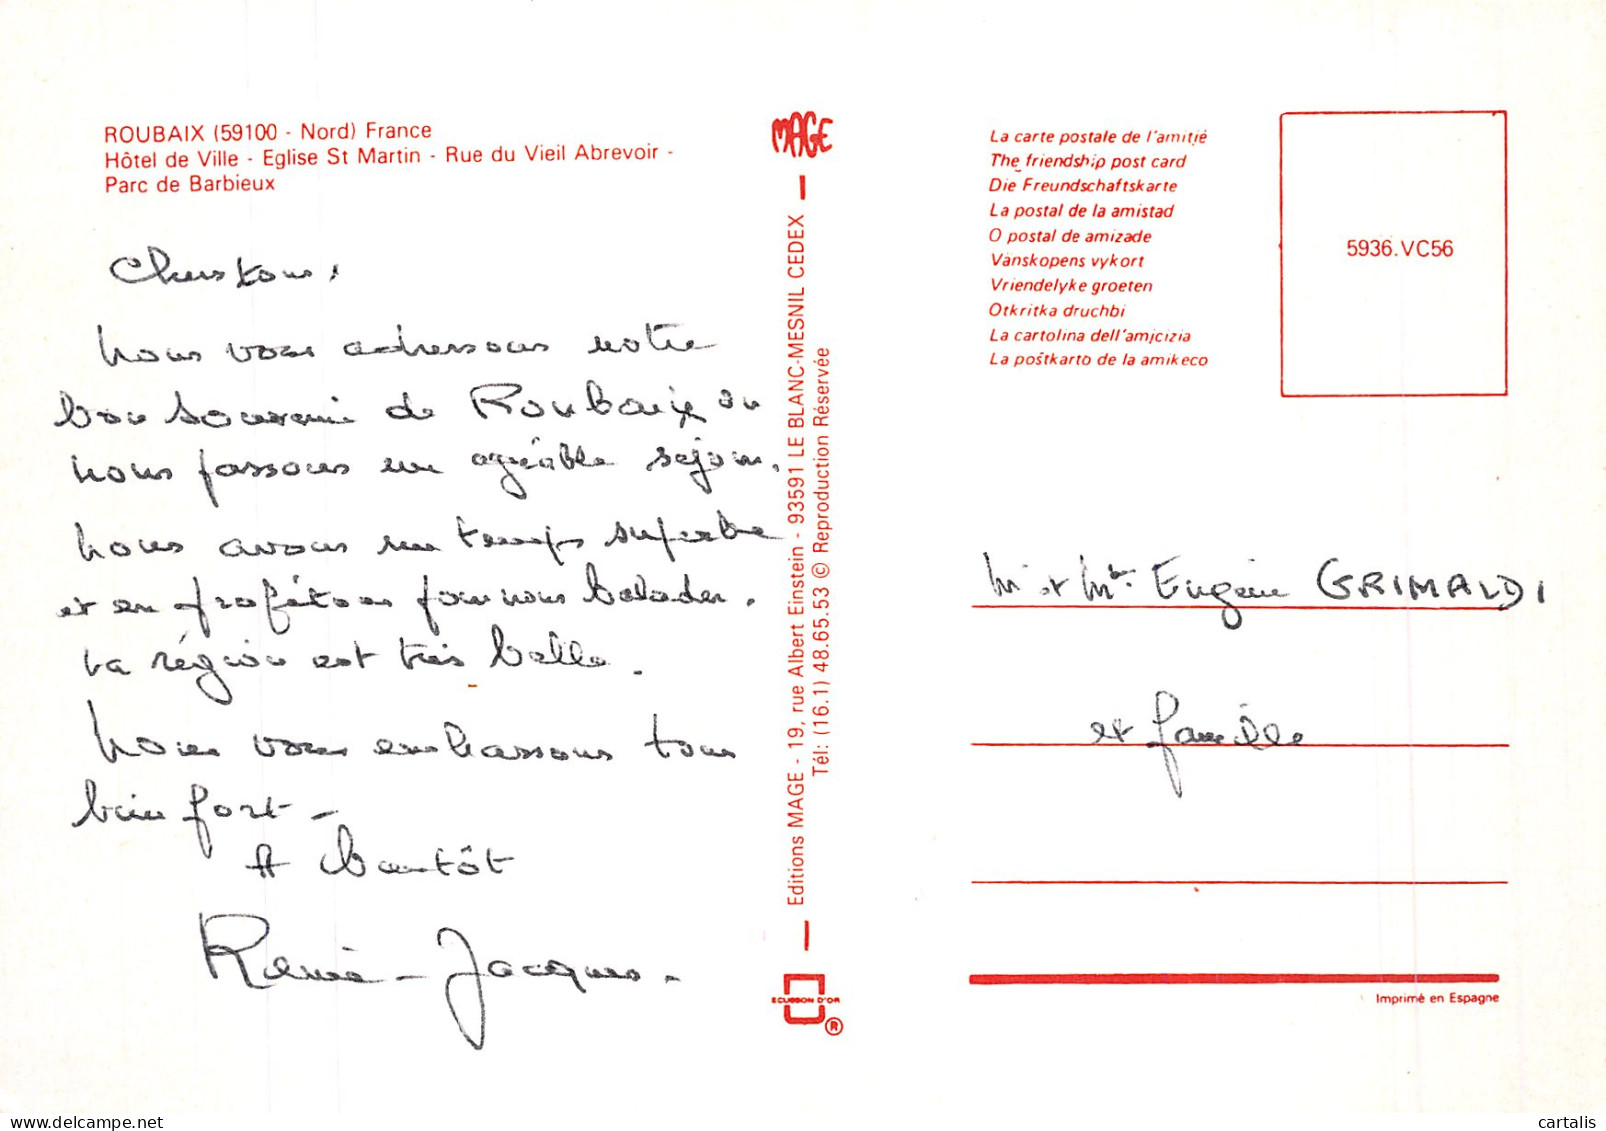 ROUBAIX (59100 - Nord) France
Hôtel de Ville - Eglise St Martin - Rue du Vieil Abrevoir -
Parc de Barbieux
Chers tous,
Nous vous adressons notre
bon souvenir de Roubaix où
nous passons un agréable séjour.
Nous avons un temps superbe
et en profitons pour nous balader.
La région est très belle.
Nous vous embrassons tous
bien fort -
A bientôt
Renée - Jacques.
MAGE
Editions MAGE - 19, rue Albert Einstein - 93591 LE BLANC-MESNIL CEDEX
Tél: (16.1) 48.65.53 © Reproduction Réservée
ECUSSON D'OR
®
La carte postale de l'amitié
The friendship post card
Die Freundschaftskarte
La postal de la amistad
O postal de amizade
Vänskopens vykort
Vriendelyke groeten
Otkritka druchbi
La cartolina dell'amicizia
La poŝtkarto de la amikeco
5936.VC56
Mr et Me. Eugène GRIMALDI
et famille
Imprimé en Espagne
cartalis
www.delcampe.net